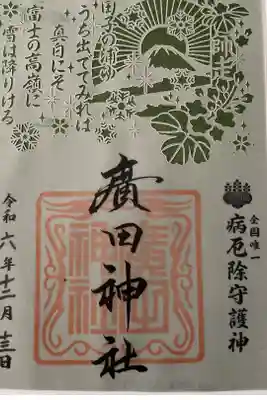 師走
田子の浦ゆ
うち出でてみれば
真白にそ
富士の高嶺に
雪は降りける
全国唯一
病厄除守護神
廣田神社
令和六年十二月十三日